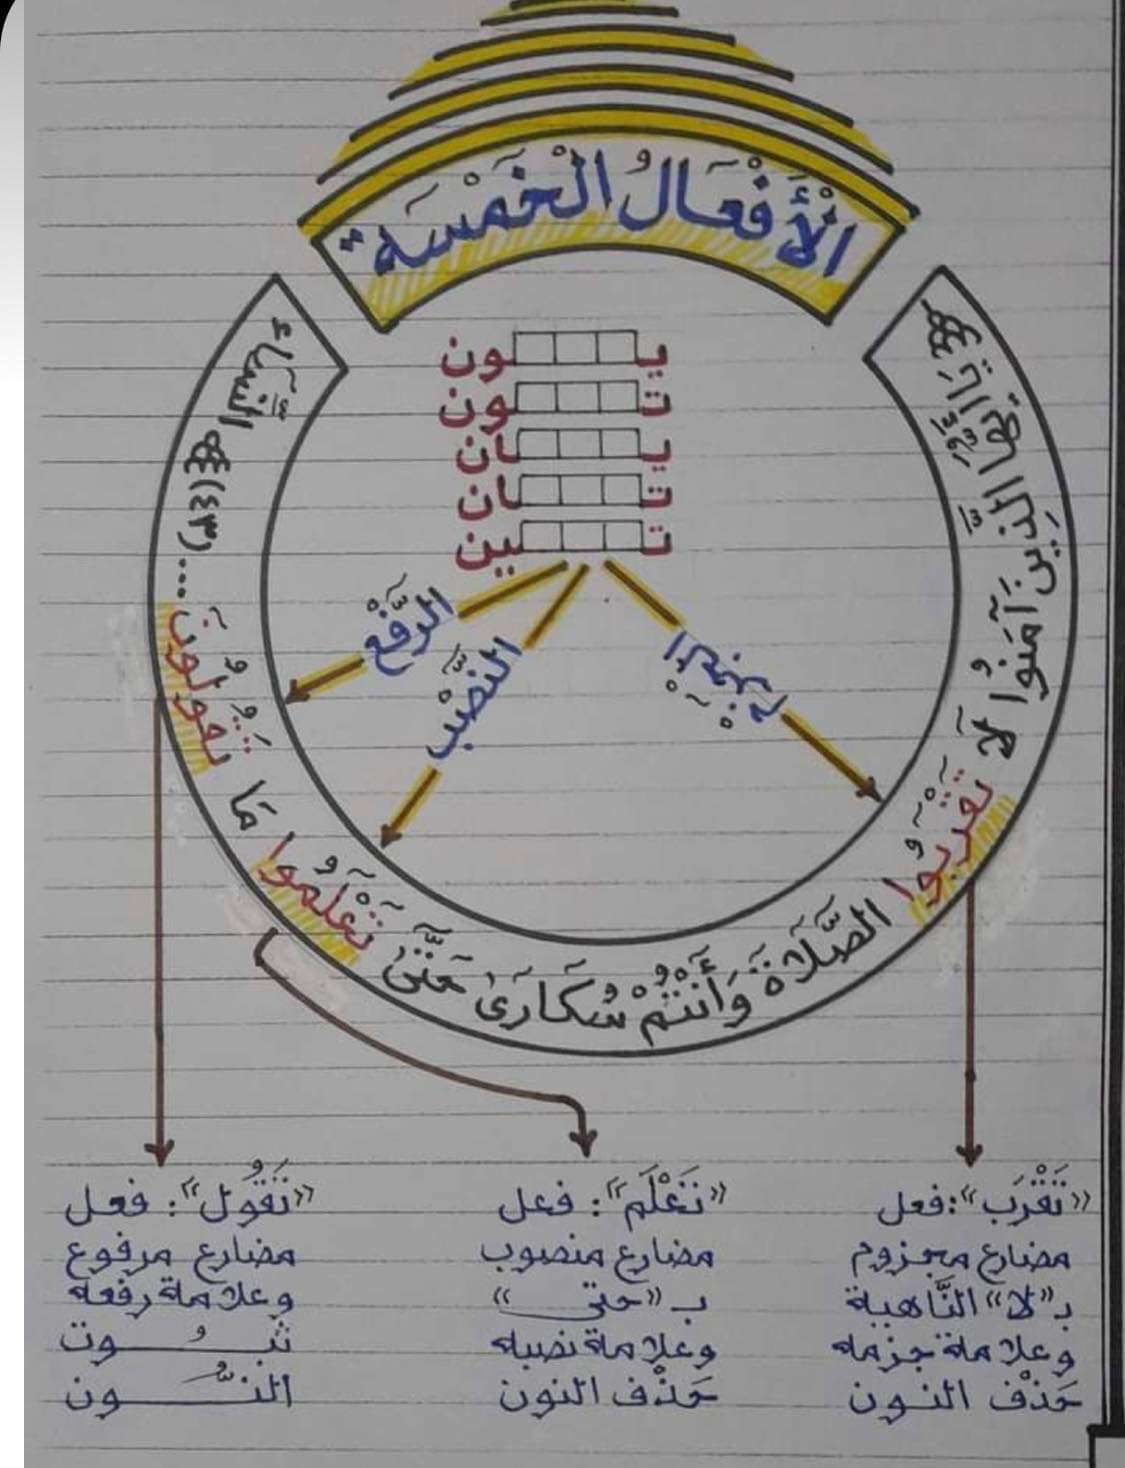 الْأَفْعَالُ الْخَمْسَة
يـ ـون
تـ ـون
يـ ـان
تـ ـان
تـ ـين
الرَّفْع
النَّصْب
الجزم
﴿يَا أَيُّهَا الَّذِينَ آمَنُوا لَا تَقْرَبُوا الصَّلَاةَ وَأَنْتُمْ سُكَارَىٰ حَتَّىٰ تَعْلَمُوا مَا تَقُولُونَ ...(٤٣)﴾ النِّسَاء
«تَقْرَب»: فعل
مضارع مجزوم
بـ «لا» النَّاهية
وعلامة جزمه
حَذْف النون
«تَعْلَم»: فعل
مضارع منصوب
بـ «حتى»
وعلامة نصبه
حَذْف النون
«تَقُول»: فعل
مضارع مرفوع
وعلامة رفعه
ثبُوت
النُّون